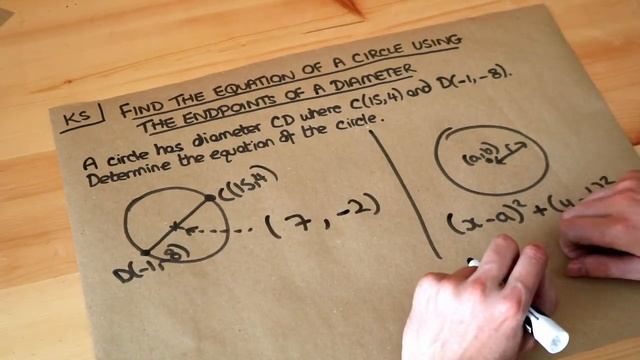 K5
FIND THE EQUATION OF A CIRCLE USING
THE ENDPOINTS OF A DIAMETER
A circle has diameter CD where C(15,4) and D(-1,-8).
Determine the equation of the circle.
C(15,4)
(7,-2)
D(-1,-8)
(a,b)
r
(x-a)²+(y-